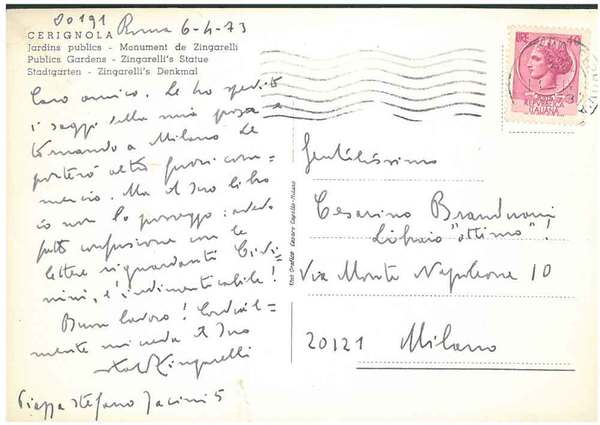 00191 Roma 6-4-73
CERIGNOLA
Jardins publics - Monument de Zingarelli
Publics Gardens - Zingarelli's Statue
Stadtgarten - Zingarelli's Denkmal
Caro amico. Le ho spedito
i saggi della mia prosa e
tornando a Milano Le
porterò altro fuori com=
mercio. Ma il Suo libro
io non lo posseggo: avevo
fatto confusione con le
lettere riguardanti
Buon lavoro! Cordial=
mente mi creda il Suo
Italo Zingarelli
Piazza Stefano Jacini 5
LIRE 40
REPUBBLICA
ITALIANA
Gentilissimo
Cesarino Branduani
Libraio "ottimo"!
Via Monte Napoleone 10
20121 Milano